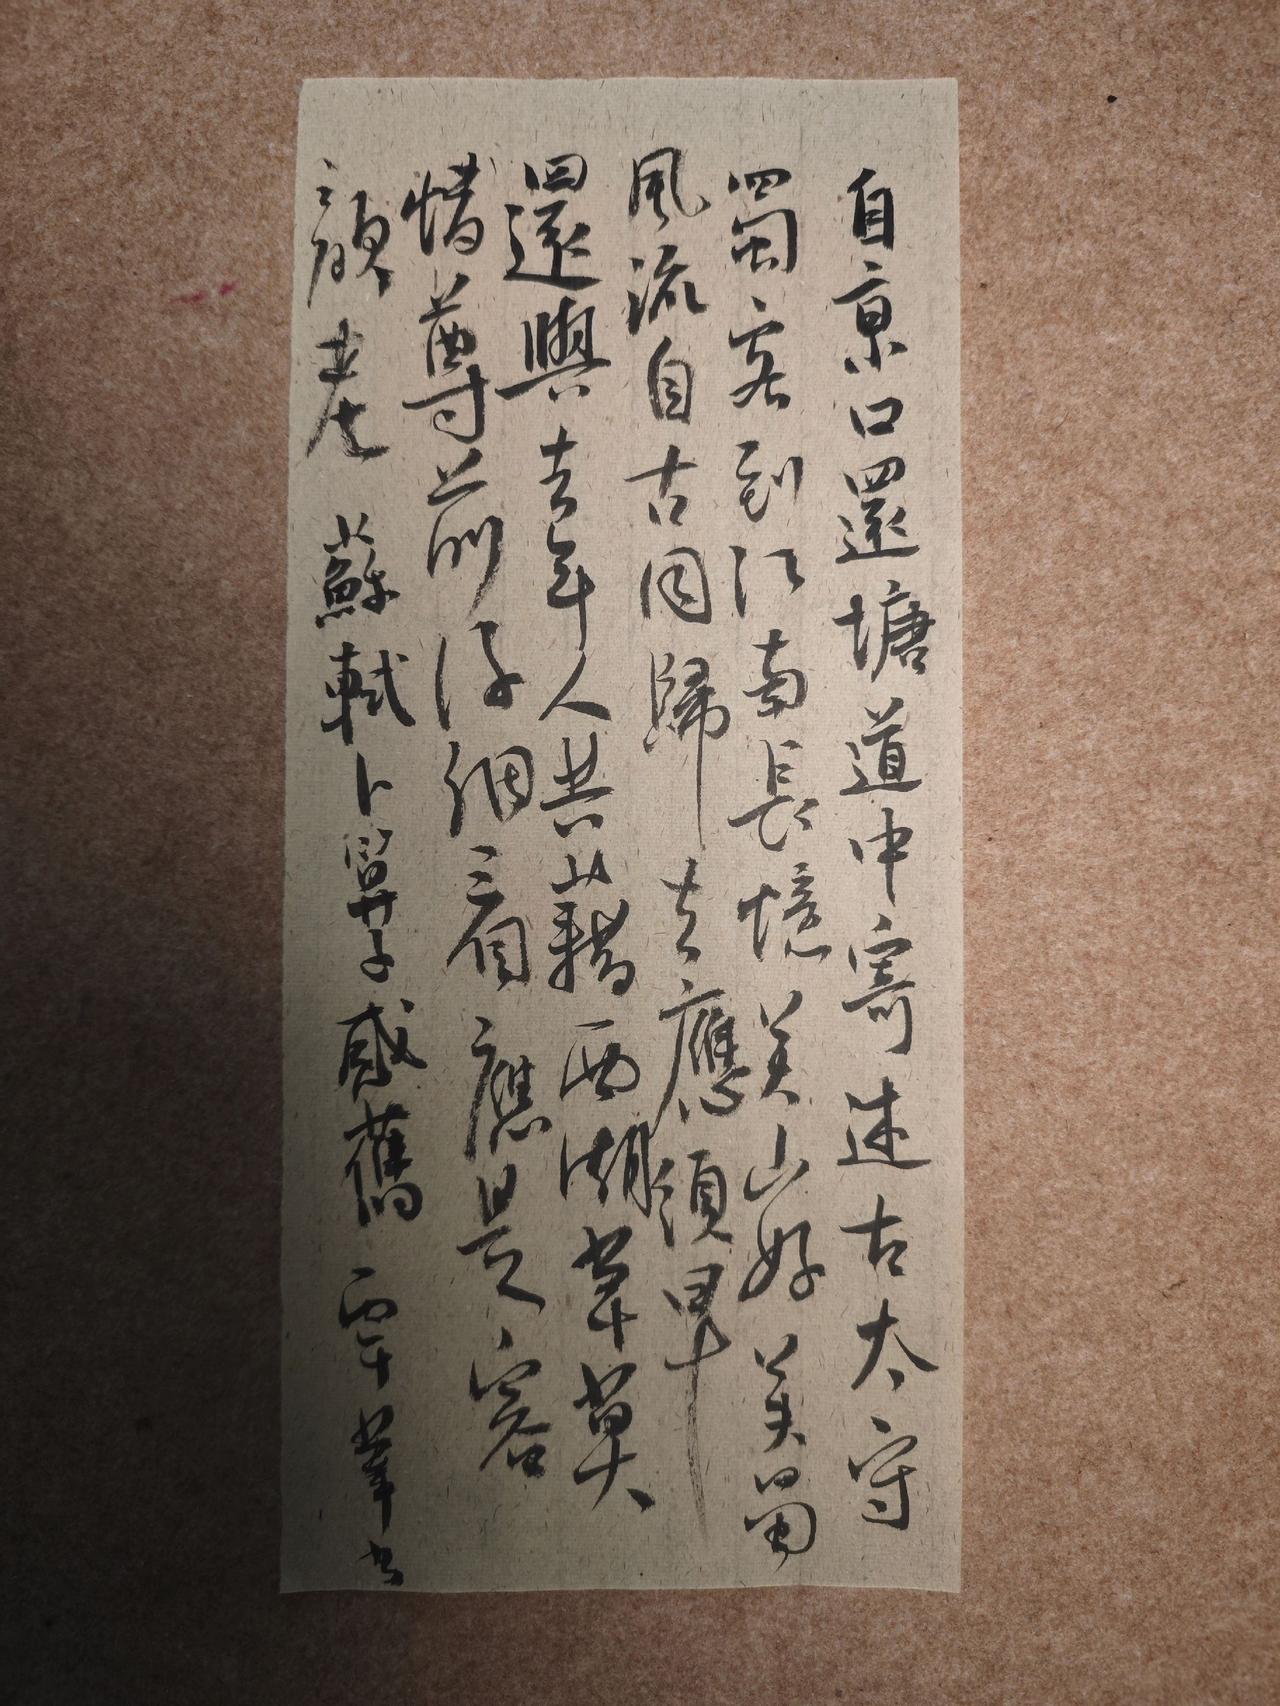 自京口還塘道中寄述古太守
蜀客到江南長憶吳山好吳蜀
風流自古同歸去應須早
還與去年人共藉西湖草莫
惜尊前仔細看應是容
顏老 蘇軾卜算子感舊 书